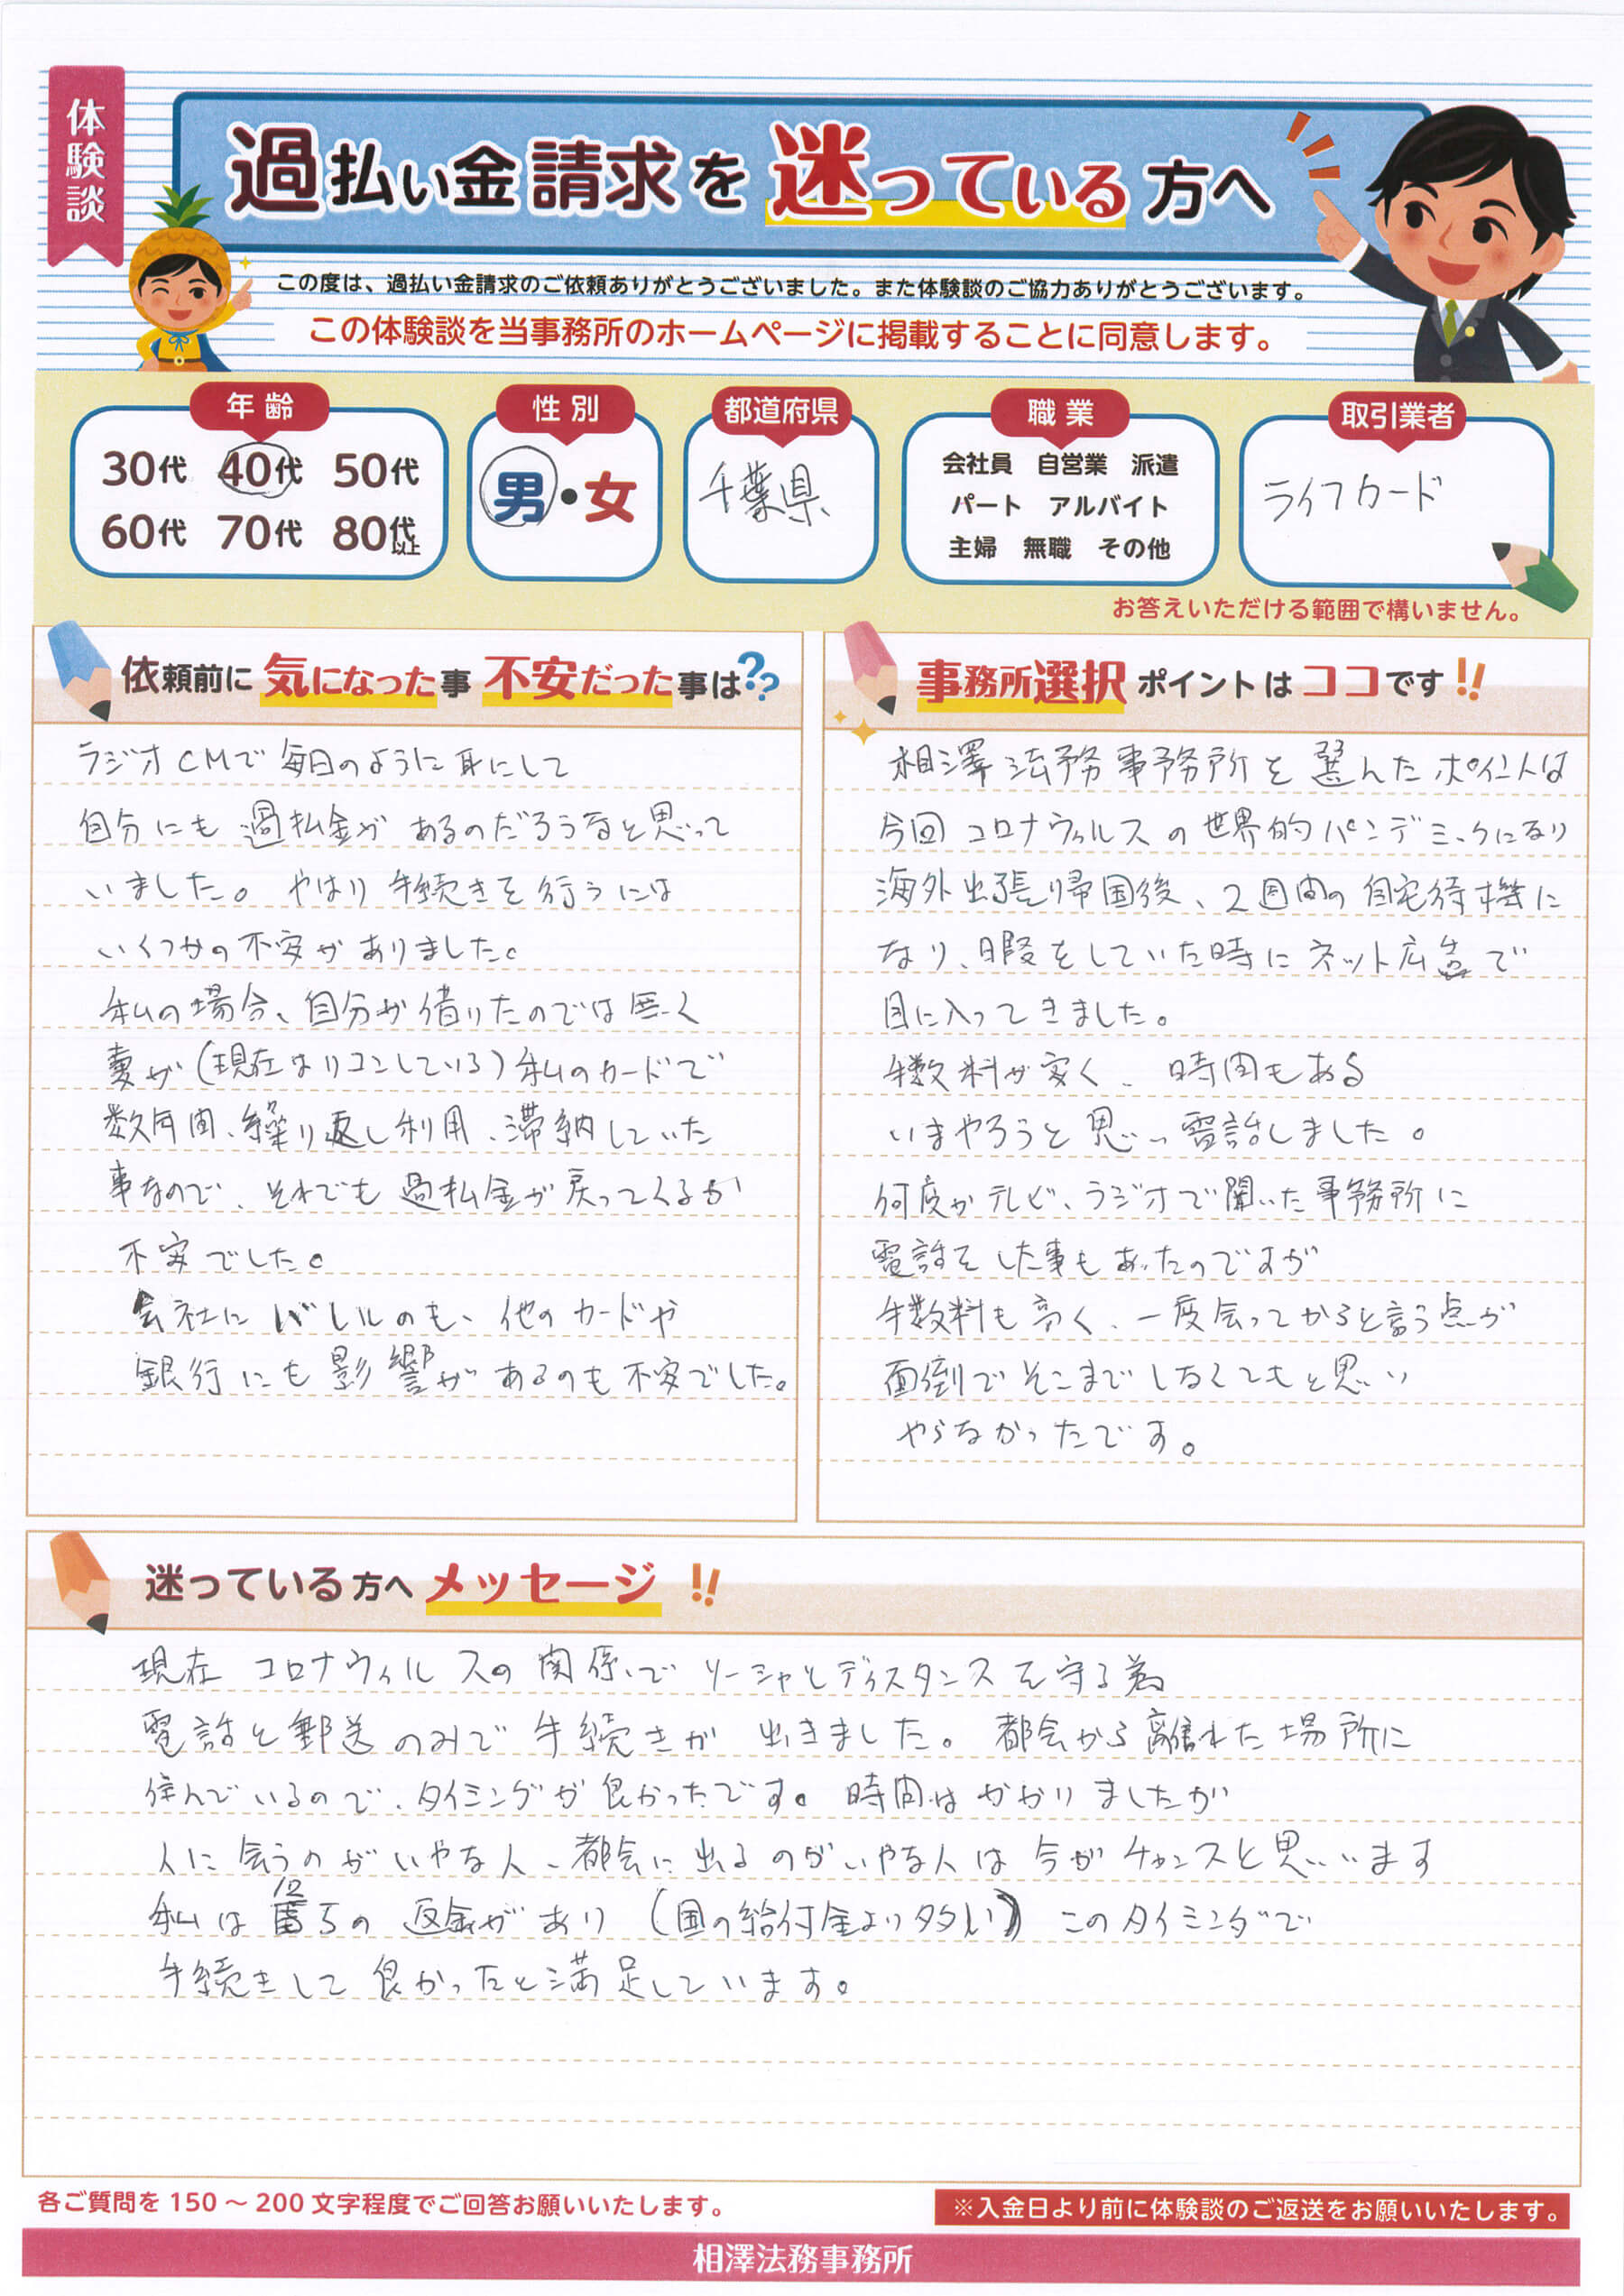 体験談
過払い金請求を迷っている方へ
この度は、過払い金請求のご依頼ありがとうございました。また体験談のご協力ありがとうございます。
この体験談を当事務所のホームページに掲載することに同意します。
年齢
30代 40代 50代
60代 70代 80代以上
性別
男・女
都道府県
千葉県
職業
会社員 自営業 派遣
パート アルバイト
主婦 無職 その他
取引業者
ライフカード
お答えいただける範囲で構いません。
依頼前に気になった事 不安だった事は??
ラジオCMで毎日のように耳にして
自分にも過払金があるのだろうなと思って
いました。やはり手続きを行うには
いくつかの不安がありました。
私の場合、自分が借りたのでは無く
妻が(現在はリコンしている)私のカードで
数年間、繰り返し利用、滞納していた
事なので、それでも過払金が戻ってくるか
不安でした。
会社にバレルのも、他のカードや
銀行にも影響があるのも不安でした。
事務所選択ポイントはココです!!
相澤法務事務所を選んだポイントは
今回コロナウィルスの世界的パンデミックになり
海外出張り帰国後、2週間の自宅待機に
なり、日暇をしていた時にネット広告で
目に入ってきました。
手数料が安く、時間もある
いまやろうと思い電話しました。
何度かテレビ、ラジオで聞いた事務所に
電話をした事もあったのですが
手数料も高く、一度会ってからと言う点が
面倒でそこまでしなくてもと思い
やらなかったです。
迷っている方へメッセージ!!
現在コロナウィルスの関係でソーシャルディスタンスを守る為
電話と郵送のみで手続きが出きました。都会から離れた場所に
住んでいるので、タイミングが良かったです。時間はかかりましたが
人に会うのがいやな人、都会に出るのがいやな人は今がチャンスと思います
私は の返金があり(国の給付金より多い)このタイミングで
手続きして良かったと満足しています。
各ご質問を150～200文字程度でご回答お願いいたします。
※入金日より前に体験談のご返送をお願いいたします。
相澤法務事務所